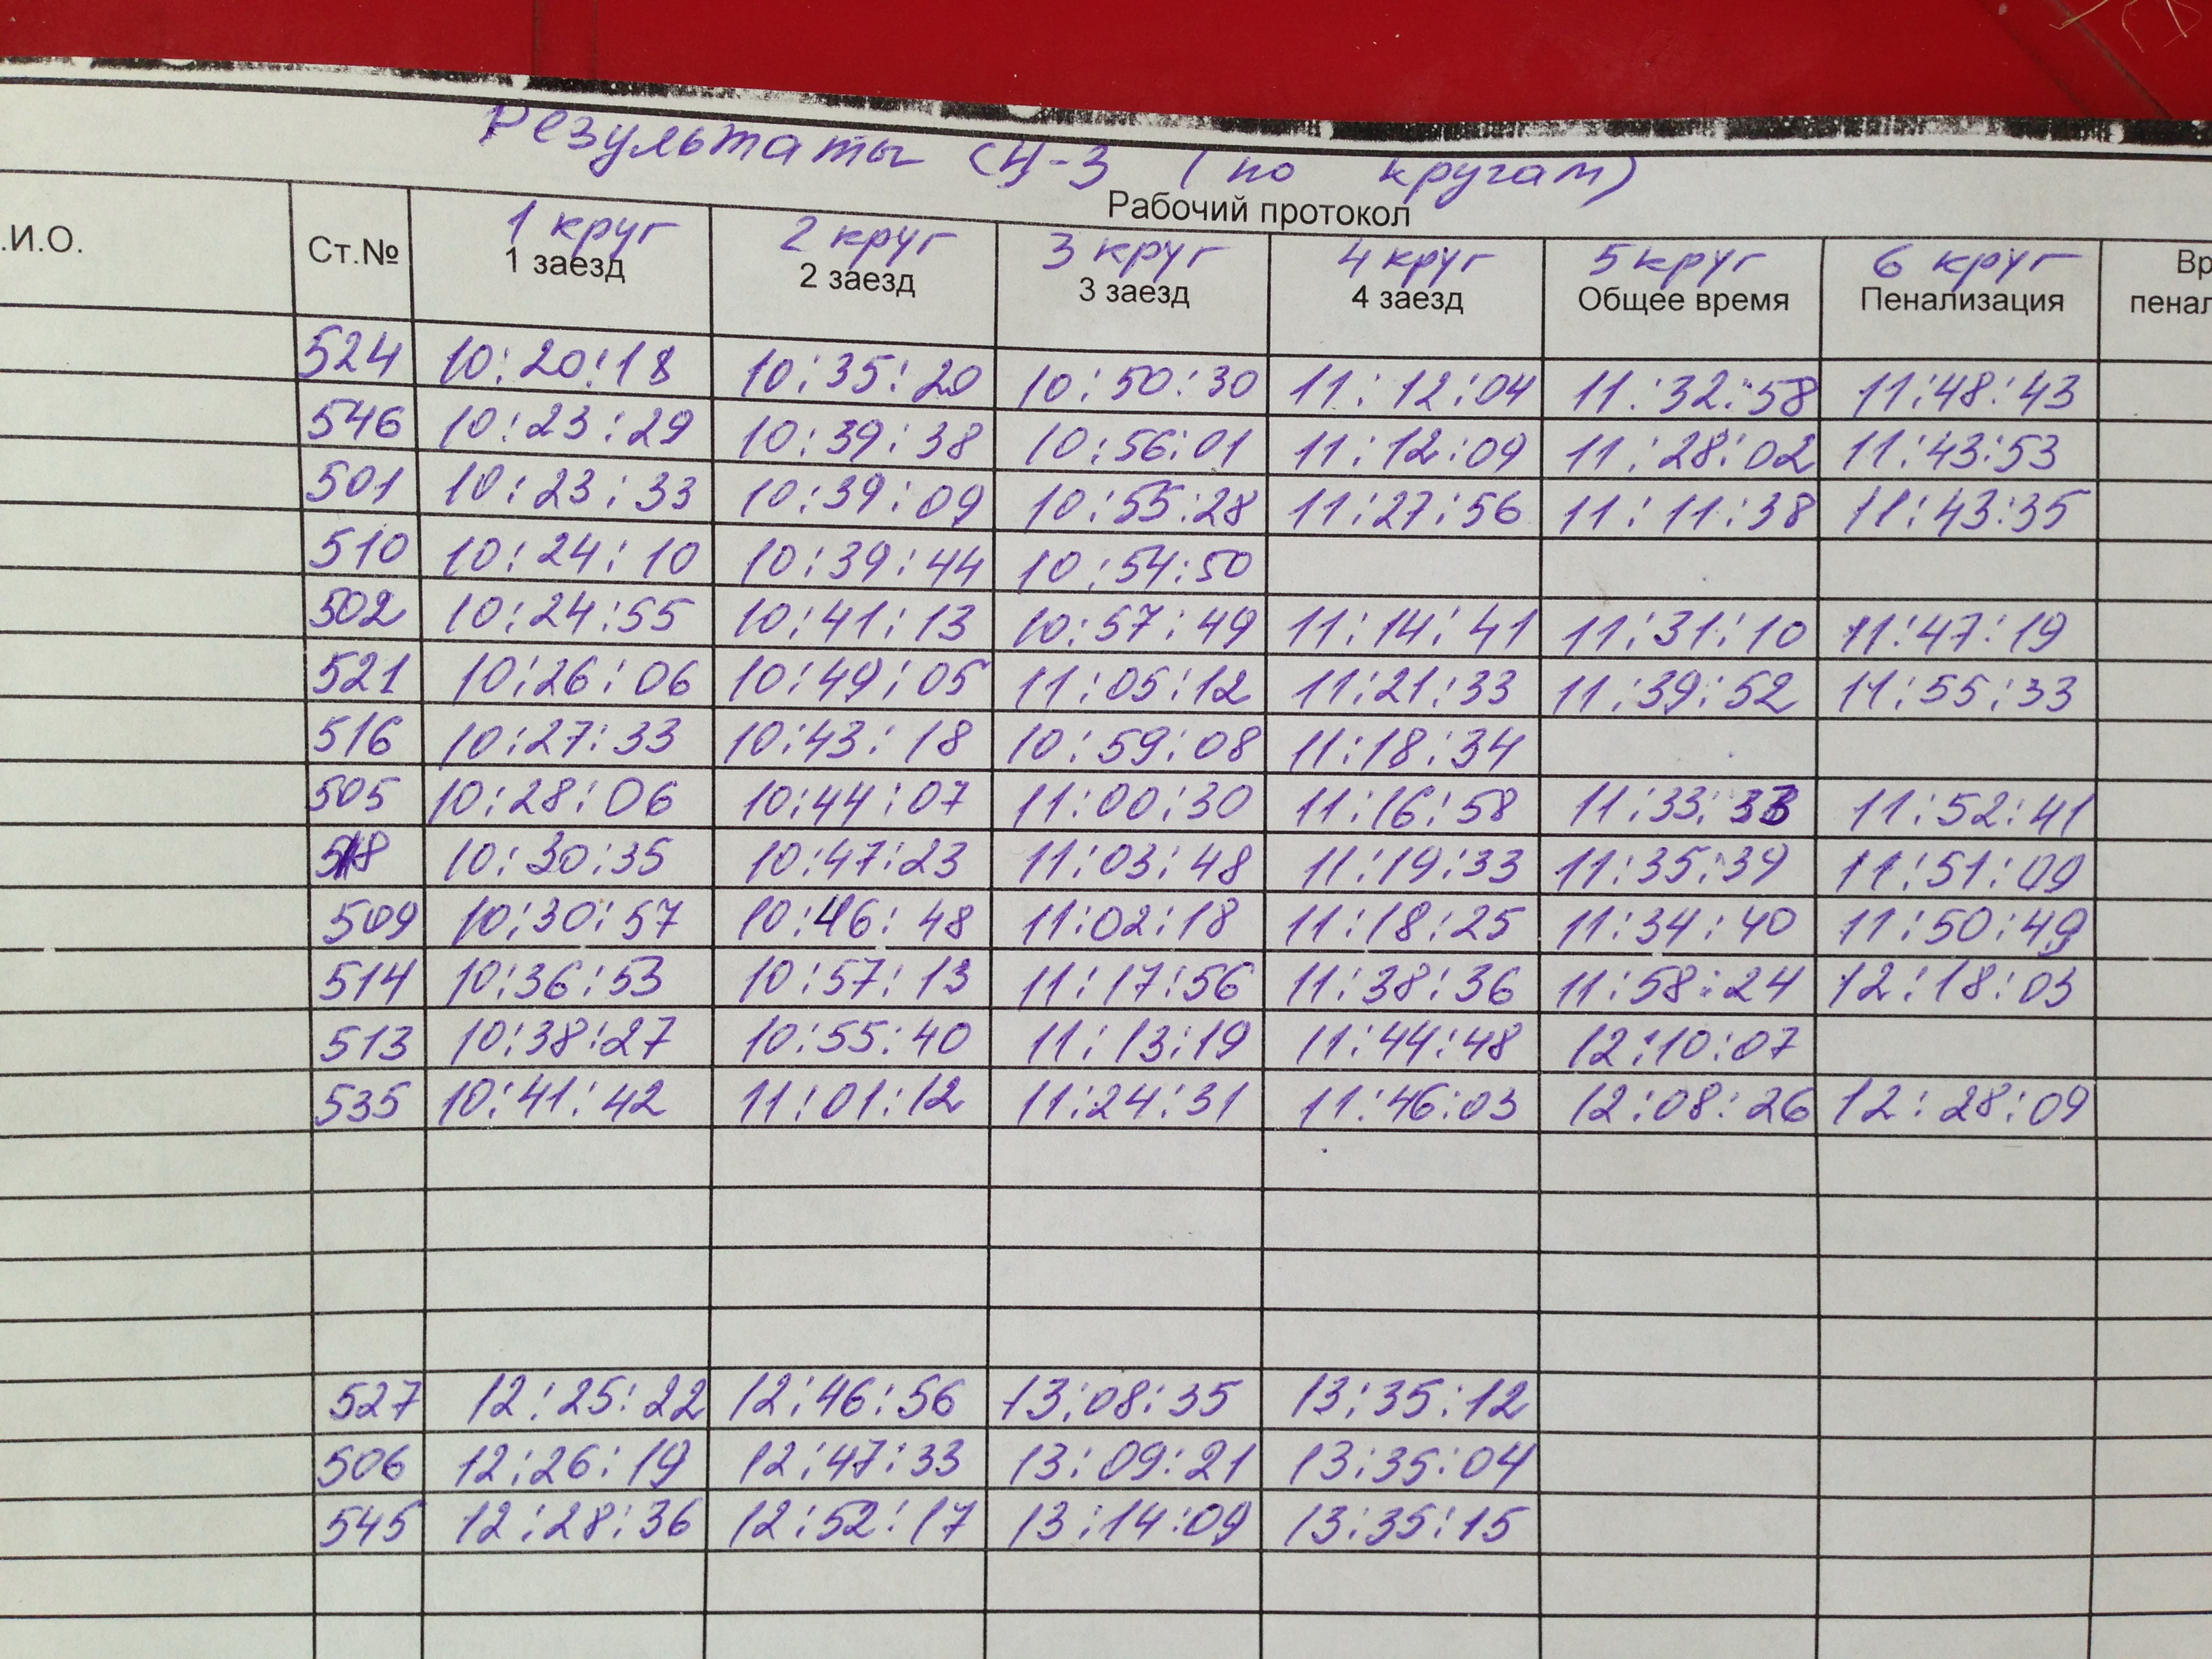 Результаты СЧ-3 (по кругам)
Рабочий протокол
.И.О. Ст.№ 1 круг 2 круг 3 круг 4 круг 5 круг 6 круг Вр
1 заезд 2 заезд 3 заезд 4 заезд Общее время Пенализация пенал
524 10:20:18 10:35:20 10:50:30 11:12:04 11:32:58 11:48:43
546 10:23:29 10:39:38 10:56:01 11:12:09 11:28:02 11:43:53
501 10:23:33 10:39:09 10:55:28 11:27:56 11:11:38 11:43:35
510 10:24:10 10:39:44 10:54:50
502 10:24:55 10:41:13 10:57:49 11:14:41 11:31:10 11:47:19
521 10:26:06 10:49:05 11:05:12 11:21:33 11:39:52 11:55:33
516 10:27:33 10:43:18 10:59:08 11:18:34
505 10:28:06 10:44:07 11:00:30 11:16:58 11:33:33 11:52:41
518 10:30:35 10:47:23 11:03:48 11:19:33 11:35:39 11:51:09
509 10:30:57 10:46:48 11:02:18 11:18:25 11:34:40 11:50:49
514 10:36:53 10:57:13 11:17:56 11:38:36 11:58:24 12:18:03
513 10:38:27 10:55:40 11:13:19 11:44:48 12:10:07
535 10:41:42 11:01:12 11:24:31 11:46:03 12:08:26 12:28:09
527 12:25:22 12:46:56 13:08:35 13:35:12
506 12:26:19 12:47:33 13:09:21 13:35:04
545 12:28:36 12:52:17 13:14:09 13:35:15